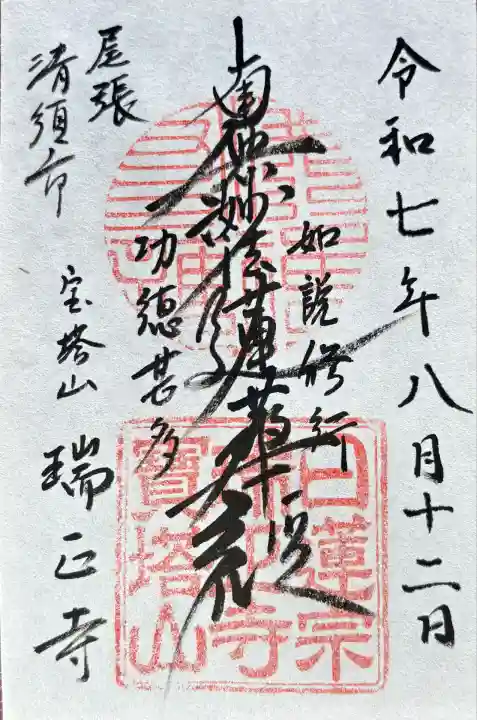 令和七年八月十二日
如説修行
南無妙法蓮華経
功徳甚多
尾張
清須市
宝塔山 瑞正寺
日蓮宗
瑞正寺
寶塔山